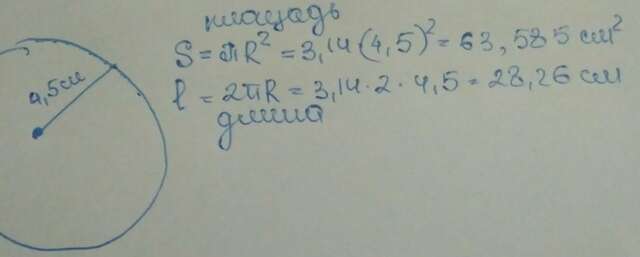 площадь
S = πR² = 3,14(4,5)² = 63,585 см²
4,5см
l = 2πR = 3,14·2·4,5 = 28,26 см
длина